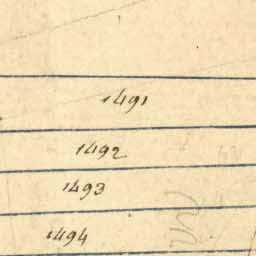 1491
1492
1493
1494